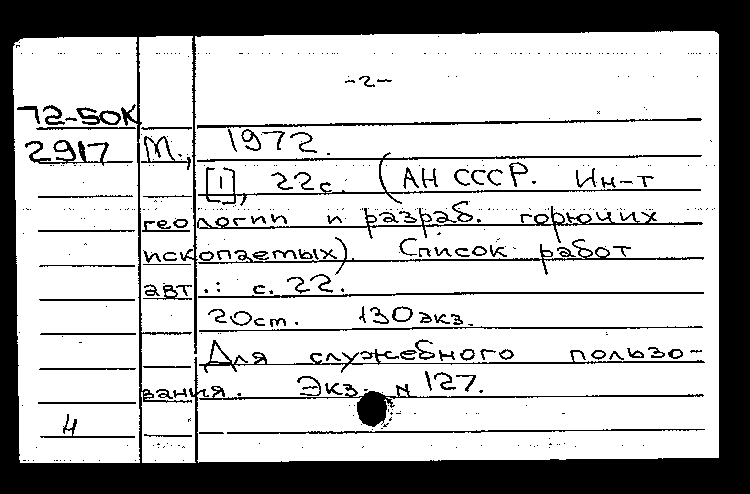 -2-
72-50К
2917 М., 1972.
[1], 22с. (АН СССР. Ин-т
геологии и разраб. горючих
ископаемых). Список работ
авт.: с. 22.
20см. 130экз.
Для служебного пользо-
вания. Экз. N 127.
4